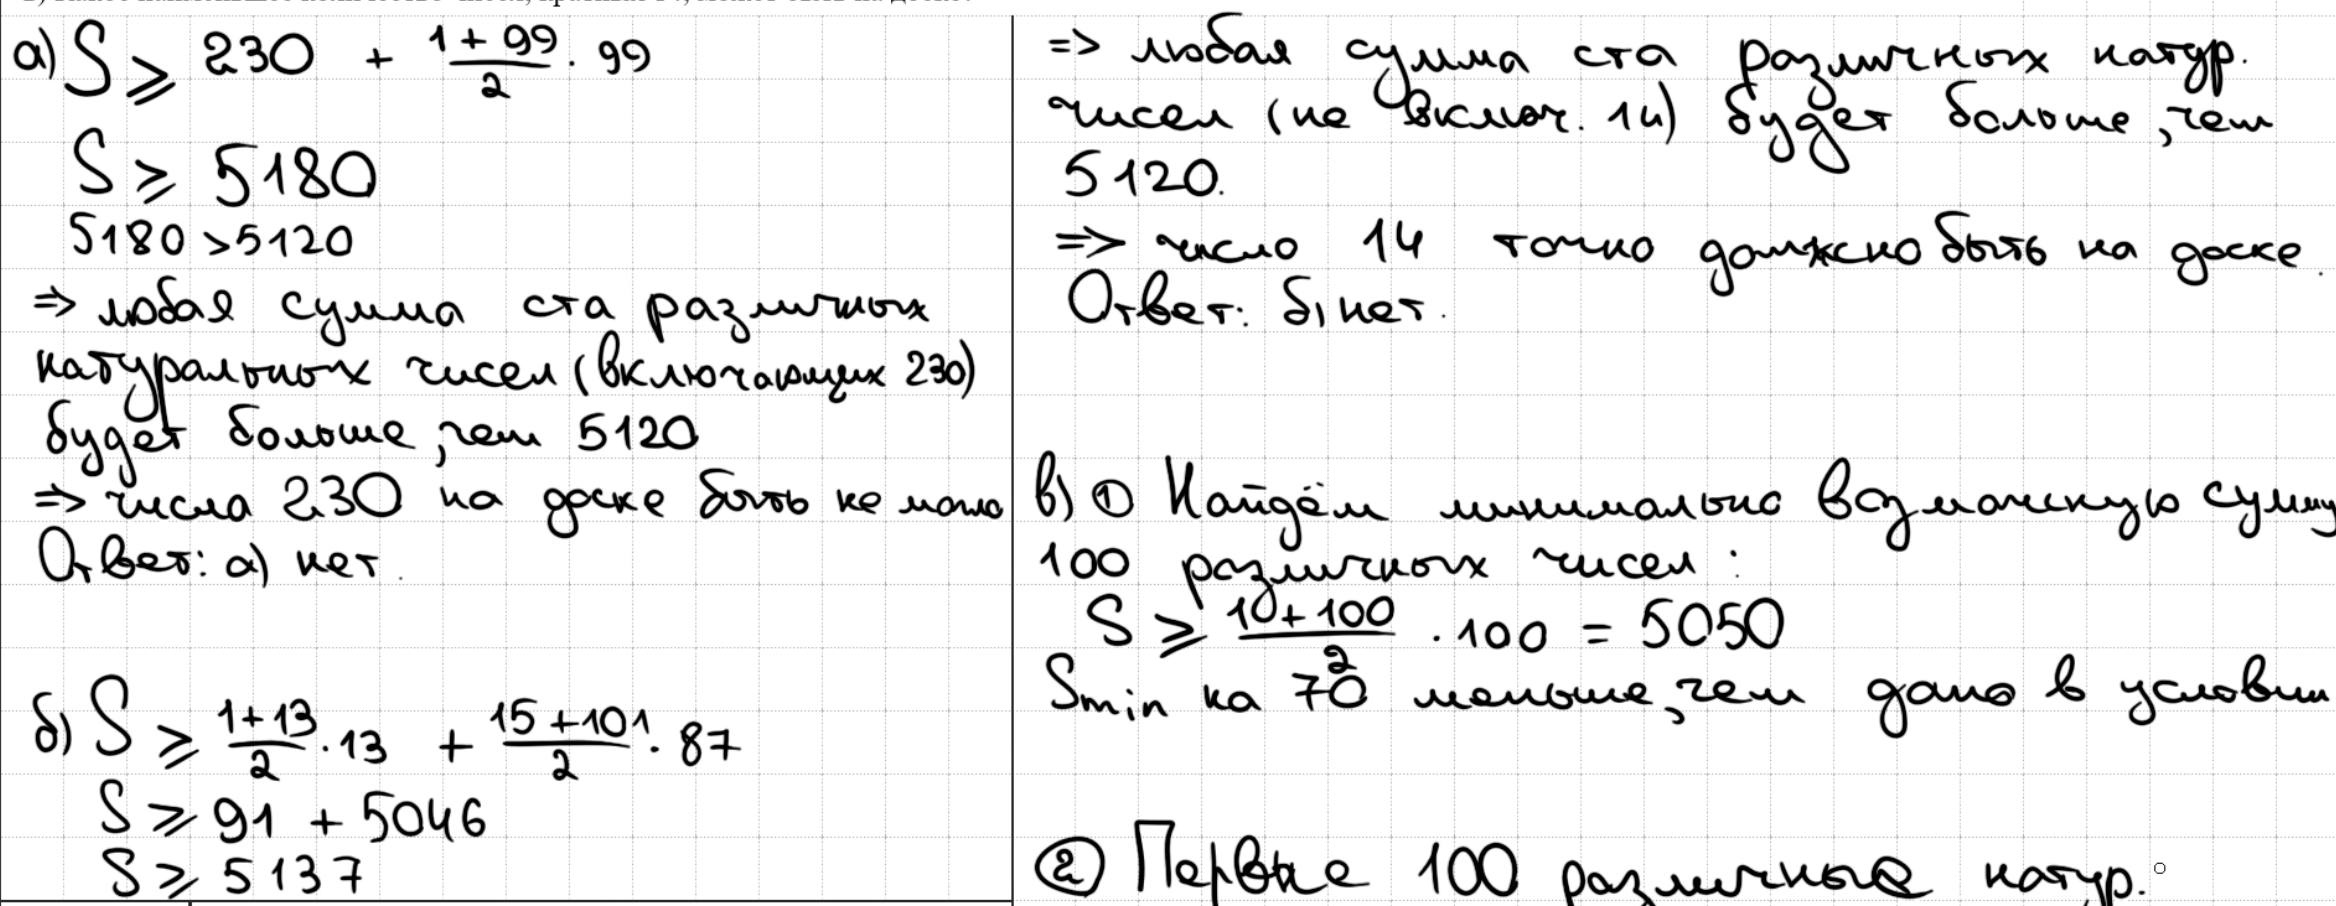 а) S ⩾ 230 + (1+99)/2 · 99
S ⩾ 5180
5180 > 5120
=> любая сумма ста различных
натуральных чисел (включающих 230)
будет больше, чем 5120
=> числа 230 на доске быть не могло
Ответ: а) нет.
б) S ⩾ (1+13)/2 · 13 + (15+101)/2 · 87
S ⩾ 91 + 5046
S ⩾ 5137
=> любая сумма ста различных натур.
чисел (не включ. 14) будет больше, чем
5120.
=> число 14 точно должно быть на доске.
Ответ: б) нет.
в) ① Найдём минимально возможную сумму
100 различных чисел:
S ⩾ (10+100)/2 · 100 = 5050
Smin на 70 меньше, чем дано в условии
② Первые 100 различные натур.